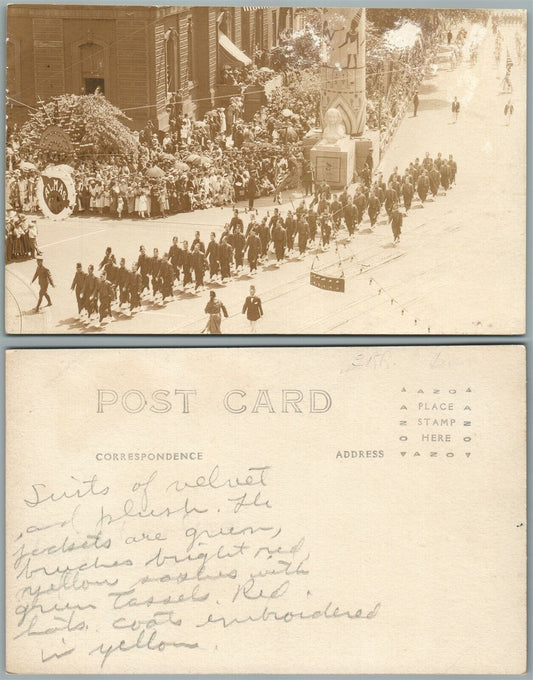 ALMAS
POST CARD
CORRESPONDENCE
ADDRESS
AZO
PLACE
STAMP
HERE
AZO
Suits of velvet
and plush. The
jackets are green,
breeches bright red,
yellow sashes with
green tassels. Red
hats. Coats embroidered
in yellow.